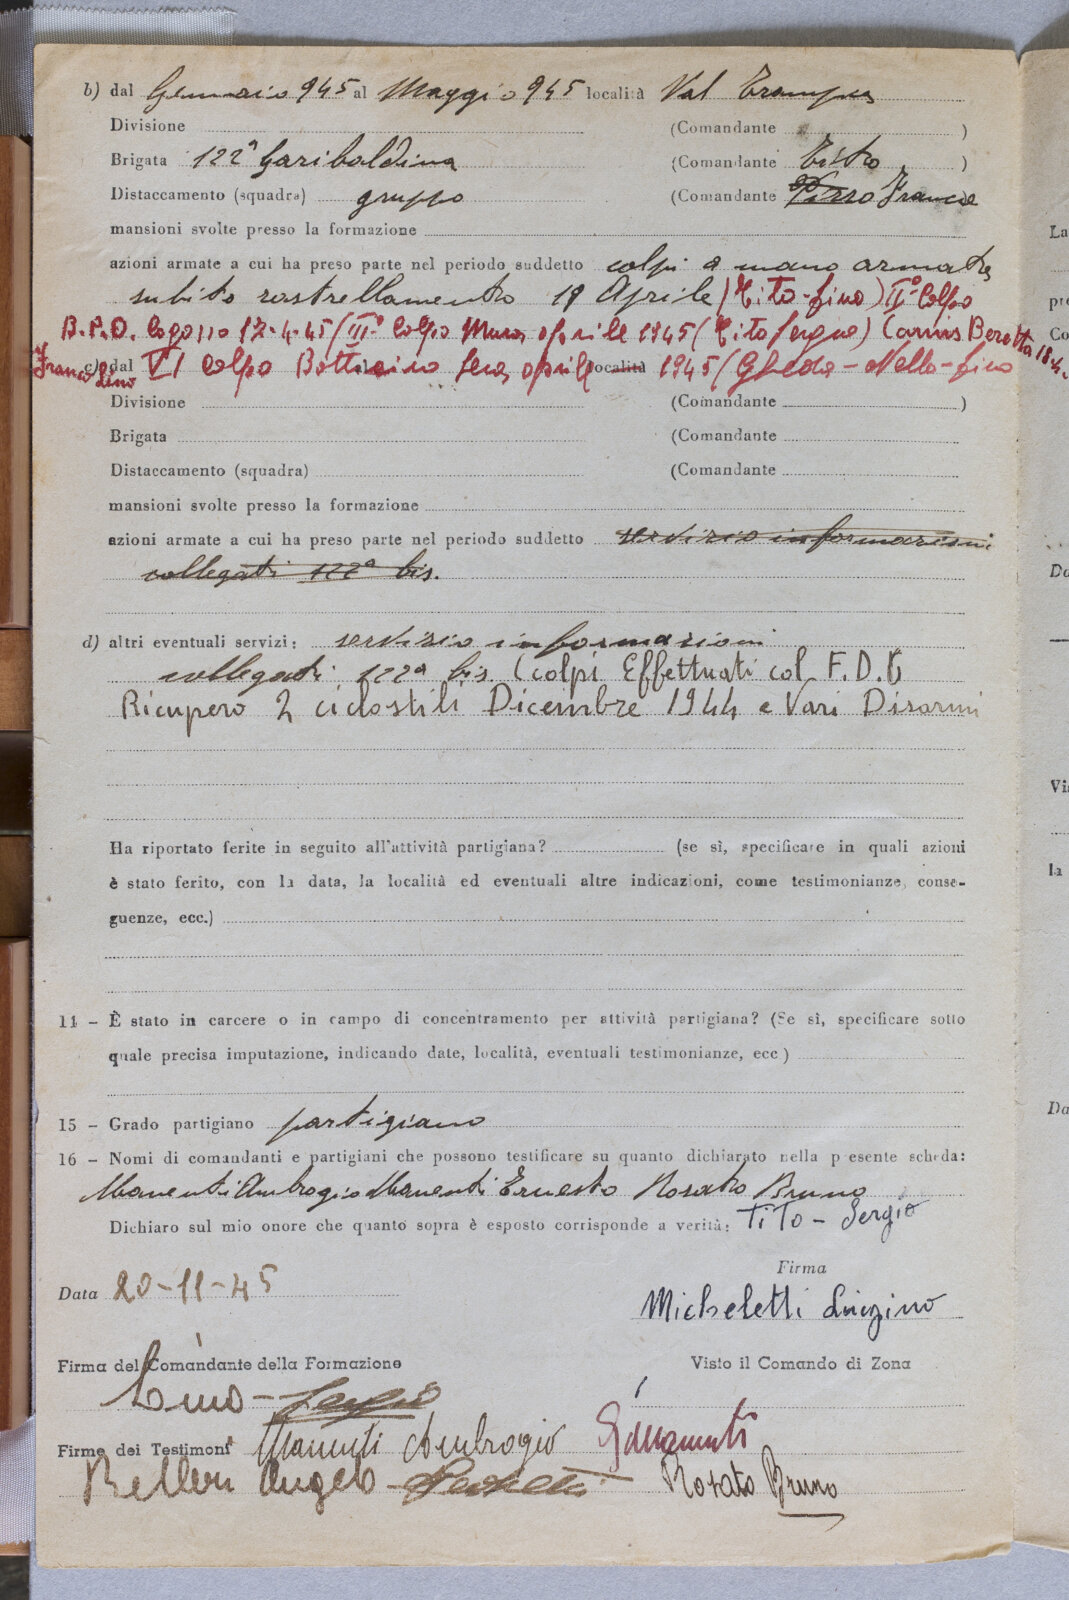 b) dal Gennaio 945 al Maggio 945 località Val Trompia
Divisione (Comandante )
Brigata 122ª Garibaldina (Comandante Tisto )
Distaccamento (squadra) gruppo (Comandante Franco
mansioni svolte presso la formazione
azioni armate a cui ha preso parte nel periodo suddetto colpi a mano armata
subito rastrellamento 19 Aprile (Tito - Lino) IIº Colpo
B.P.D. Cogozzo 17-4-45 (IIIº Colpo Mura aprile 1945 (Tito Sergio) Camis Beretta 18-4-
Franco Lino c) dal VI colpo Botticino Sera aprile località 1945 (Gheda - Nello - Lino
Divisione (Comandante )
Brigata (Comandante
Distaccamento (squadra) (Comandante
mansioni svolte presso la formazione
azioni armate a cui ha preso parte nel periodo suddetto servizio informazioni
collegati 122ª bis.
d) altri eventuali servizi: servizio informazioni
collegati 122ª bis (colpi Effettuati col F.D.G
Ricupero 2 ciclostili Dicembre 1944 e Vari Disarmi
Ha riportato ferite in seguito all'attività partigiana? (se sì, specificare in quali azioni
è stato ferito, con la data, la località ed eventuali altre indicazioni, come testimonianze, conse-
guenze, ecc.)
11 - È stato in carcere o in campo di concentramento per attività partigiana? (Se sì, specificare sotto
quale precisa imputazione, indicando date, località, eventuali testimonianze, ecc)
15 - Grado partigiano partigiano
16 - Nomi di comandanti e partigiani che possono testificare su quanto dichiarato nella presente scheda:
Manenti Ambrogio Manenti Ernesto Rosato Bruno
Dichiaro sul mio onore che quanto sopra è esposto corrisponde a verità: TiTo - Sergio
Firma
Data 20-11-45
Micheletti Luigino
Firma del Comandante della Formazione Visto il Comando di Zona
Lino - Sergio
Firme dei Testimoni Manenti Ambrogio EManenti
Belleri Angelo Rosato Bruno
La
pre
Co
Do
Vi
la
Da